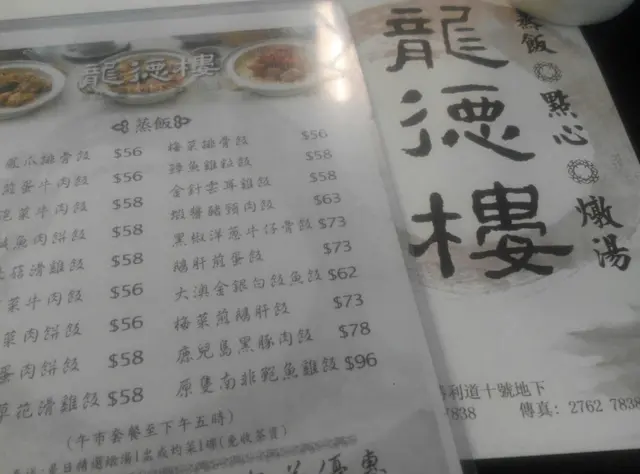 龍德樓
蒸飯
鳳爪排骨飯 $56
煎蛋牛肉飯 $56
菜牛肉飯 $58
鹹魚肉餅飯 $58
菇滑雞飯 $58
菜牛肉飯 $56
菜肉餅飯 $56
蛋肉餅飯 $58
草花滑雞飯 $58
梅菜排骨飯 $56
雞粒飯 $58
金針雲耳雞飯 $58
蝦醬豬頸肉飯 $63
黑椒洋蔥牛仔骨飯 $73
鵝肝煎蛋飯 $73
大澳金銀白飯魚飯 $62
梅菜煎鵝肝飯 $73
鹿兒島黑豚肉飯 $78
原隻南非鮑魚雞飯 $96
(午市套餐至下午五時)
是日精選燉湯1盅或灼菜1碟(免收茶資)
優惠
龍德樓
蒸飯
點心
燉湯
利道十號地下
7838
傳真: 2762 7838